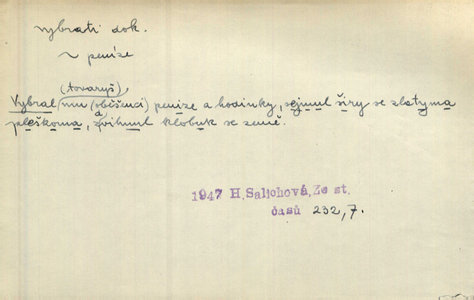 vybrati dok.
~ peníze
(tovaryš)
Vybral (mu (oběšenci) peníze a hodinky, sejmul šňry se zlatyma
pleškoma, a zvihnul klobuk se země.
1947 H. Salichová, Ze st.
časů 232, 7.